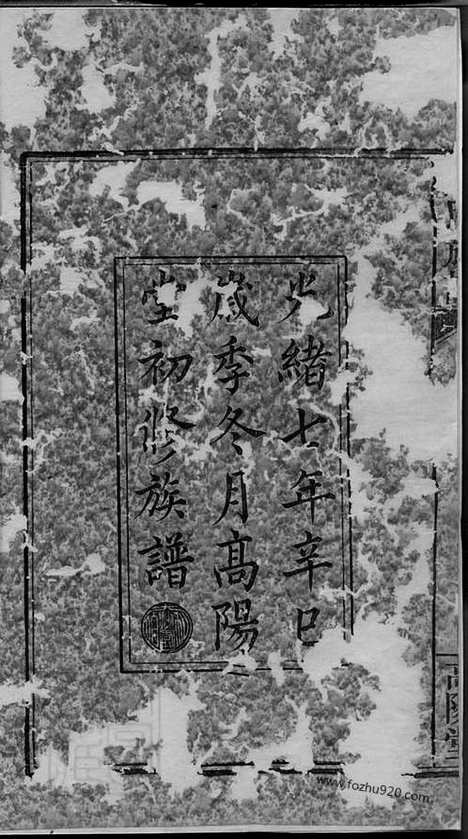 光緒七年辛巳
歲季冬月高陽
堂初修族譜
高陽堂
www.fozhu920.com